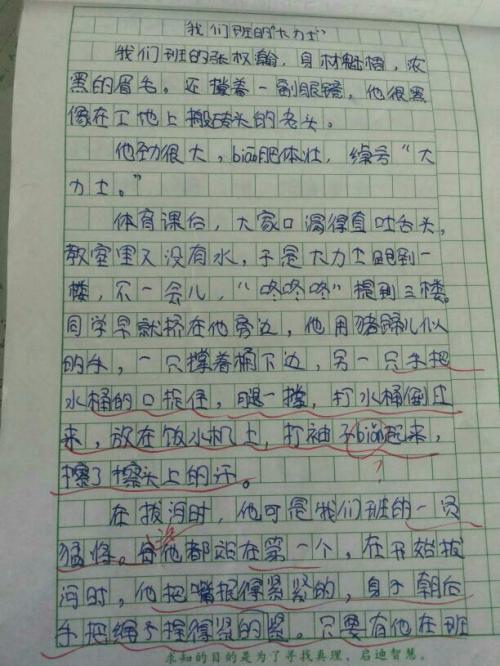 我们班的"大力士"
我们班的张权瀚，身材魁梧，浓
黑的眉毛。还撑着一副眼镜，他很黑
像在工地上搬砖头的老头。
他劲很大，biāo肥体壮，绰号"大
力士。"
体育课后，大家口渴得直吐舌头，
教室里又没有水，于是大力士跑到一
楼，不一会儿，"咚咚咚"提到三楼。
同学早就挤在他旁边，他用猪蹄儿似
的手，一只撑着桶下边，另一只手把
水桶的口捉住，腿一撑，打水桶倒庄
来，放在饭水机上，打袖子biǎn起来，
擦了擦头上的汗。
在拔河时，他可是我们班的一员
猛将。每次他都站在第一个，在开始拔
河时，他把嘴抿得紧紧的，身子朝后
手把绳子捏得紧的紧。只要有他在班
求知的目的是为了寻找真理，启迪智慧。